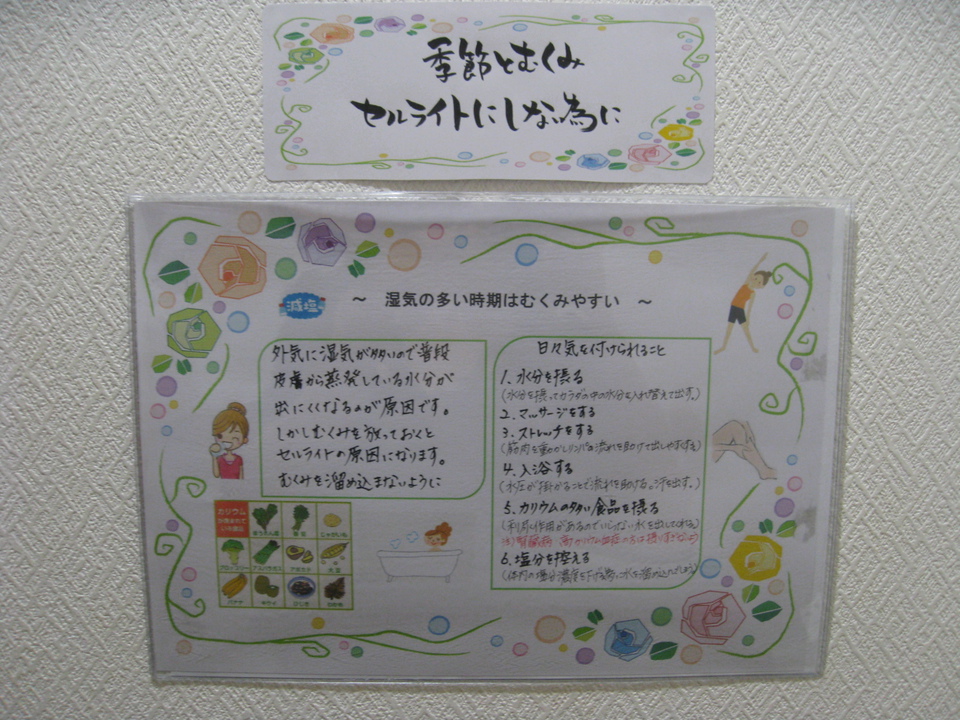 季節とむくみ
セルライトにしな為に
減塩
～ 湿気の多い時期はむくみやすい ～
外気に湿気が多いので普段
皮膚から蒸発している水分が
出にくくなるのが原因です。
しかしむくみを放っておくと
セルライトの原因になります。
むくみを溜め込まないように
日々気を付けられること
1. 水分を摂る
(水分を摂ってカラダの中の水分を入れ替えて出す。)
2. マッサージをする
3. ストレッチをする
(筋肉を動かしリンパの流れを助けて出しやすくする)
4. 入浴する
(水圧が掛かることで流れを助ける。汗を出す。)
5. カリウムの多い食品を摂る
(利尿作用があるのでいらない水を出してくれる)
6. 塩分を控える
(体内の塩分濃度を下げる為に水を溜め込んでしまう)
カリウム
が含まれて
いる食品
ほうれん草
じゃがいも
ブロッコリー
アスパラガス
アボカド
大豆
バナナ
キウイ
ひじき